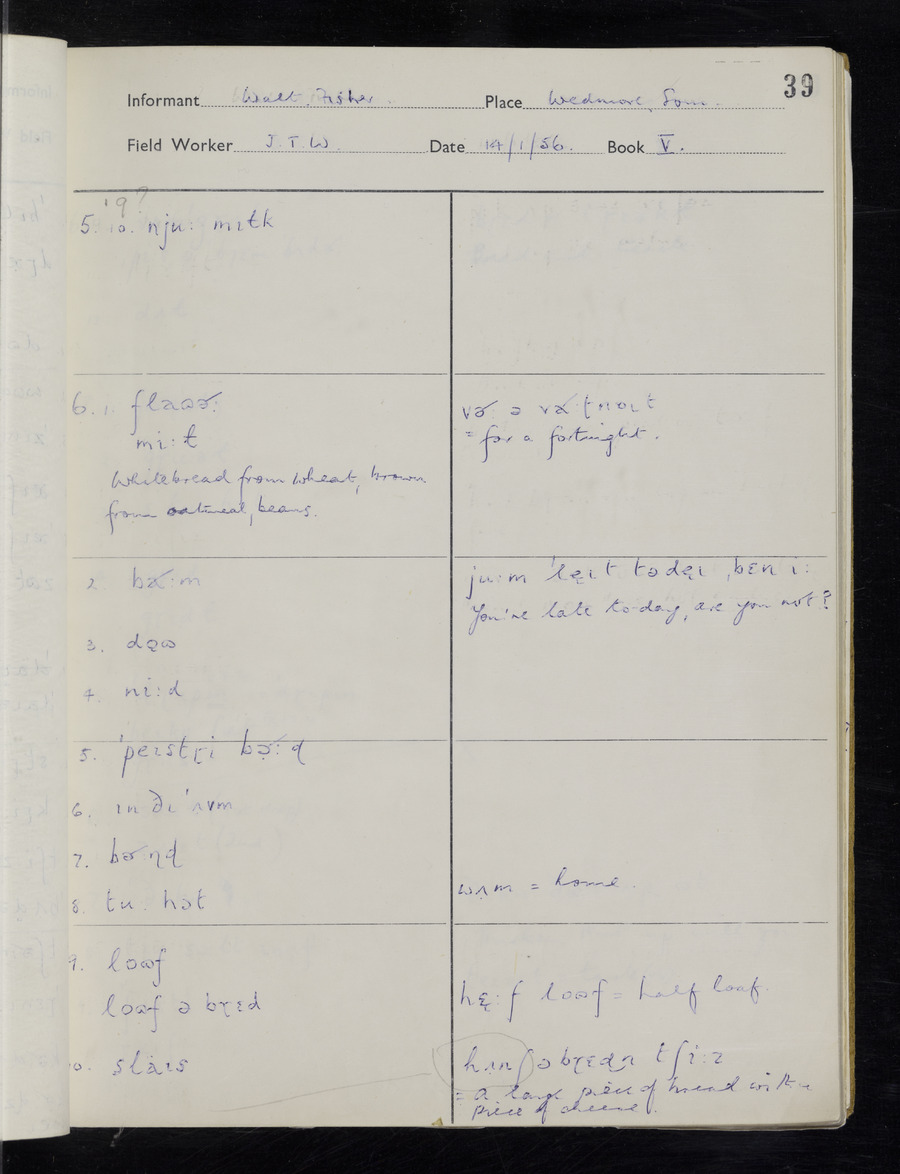 39
Informant Walt Fisher. Place Wedmore, Som.
Field Worker J.T.W. Date 14/1/56. Book V.
'9?
5. 10. nju: mɪɫk
6. 1. flaωə˞:
mi:ɫ
Whitebread from wheat, brown
from oatmeal, beans.
= for a fortnight.
2. ba˞:m
3. dϙω
4. ni:d
ju:m 'lęɪt tədęɪ, bɛn i:
You're late to-day, are you not?
5. 'peɪstɽi bə˞:ɖ
6. ɪn ðɪ 'ʌvm
7. bə˞:ɳɖ
8. tu: hɒt
wʌm = home.
9. loωf
loωf ə bɽɛd
hę:f loωf = half loaf.
10. slaɪs
hʌnʃ ə bɽɛdn tʃi:z
= a large piece of bread with a
piece of cheese.